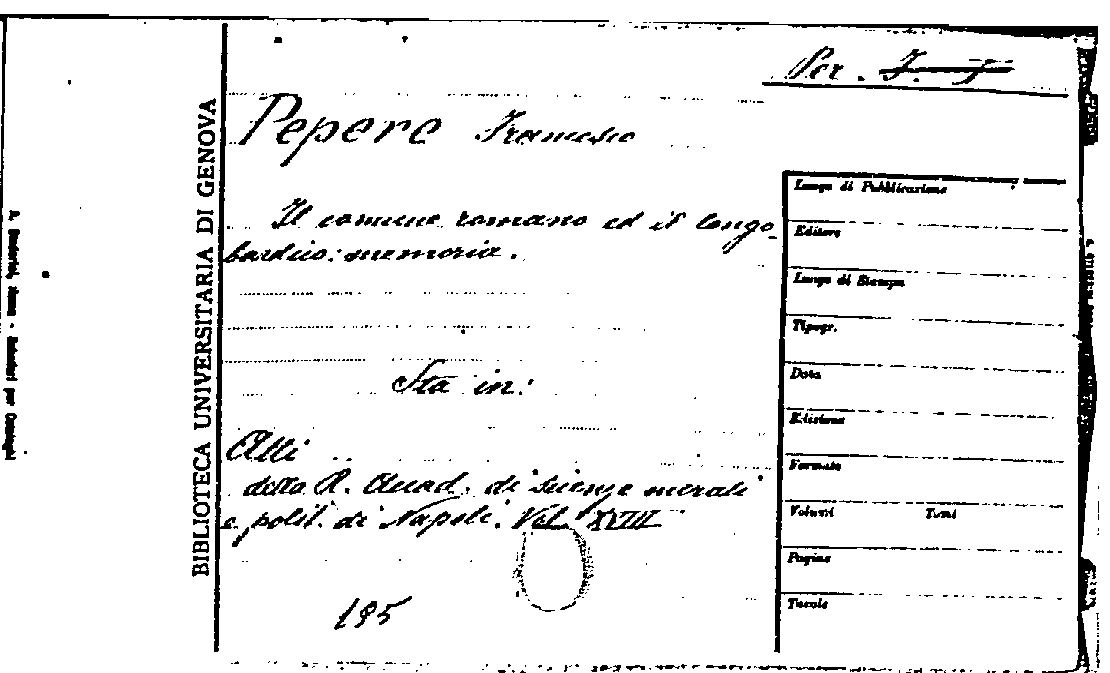 Per. I. J
Pepere Francesco
Il comune romano ed il longo-
bardico: memoria.
Sta in:
Atti
della R. Accad. di Scienze morali
e polit. di Napoli. Vol. XVIII
195
BIBLIOTECA UNIVERSITARIA DI GENOVA
Luogo di Pubblicazione
Editore
Luogo di Stampa
Tipogr.
Data
Edizione
Formato
Volumi Tomi
Pagine
Tavole